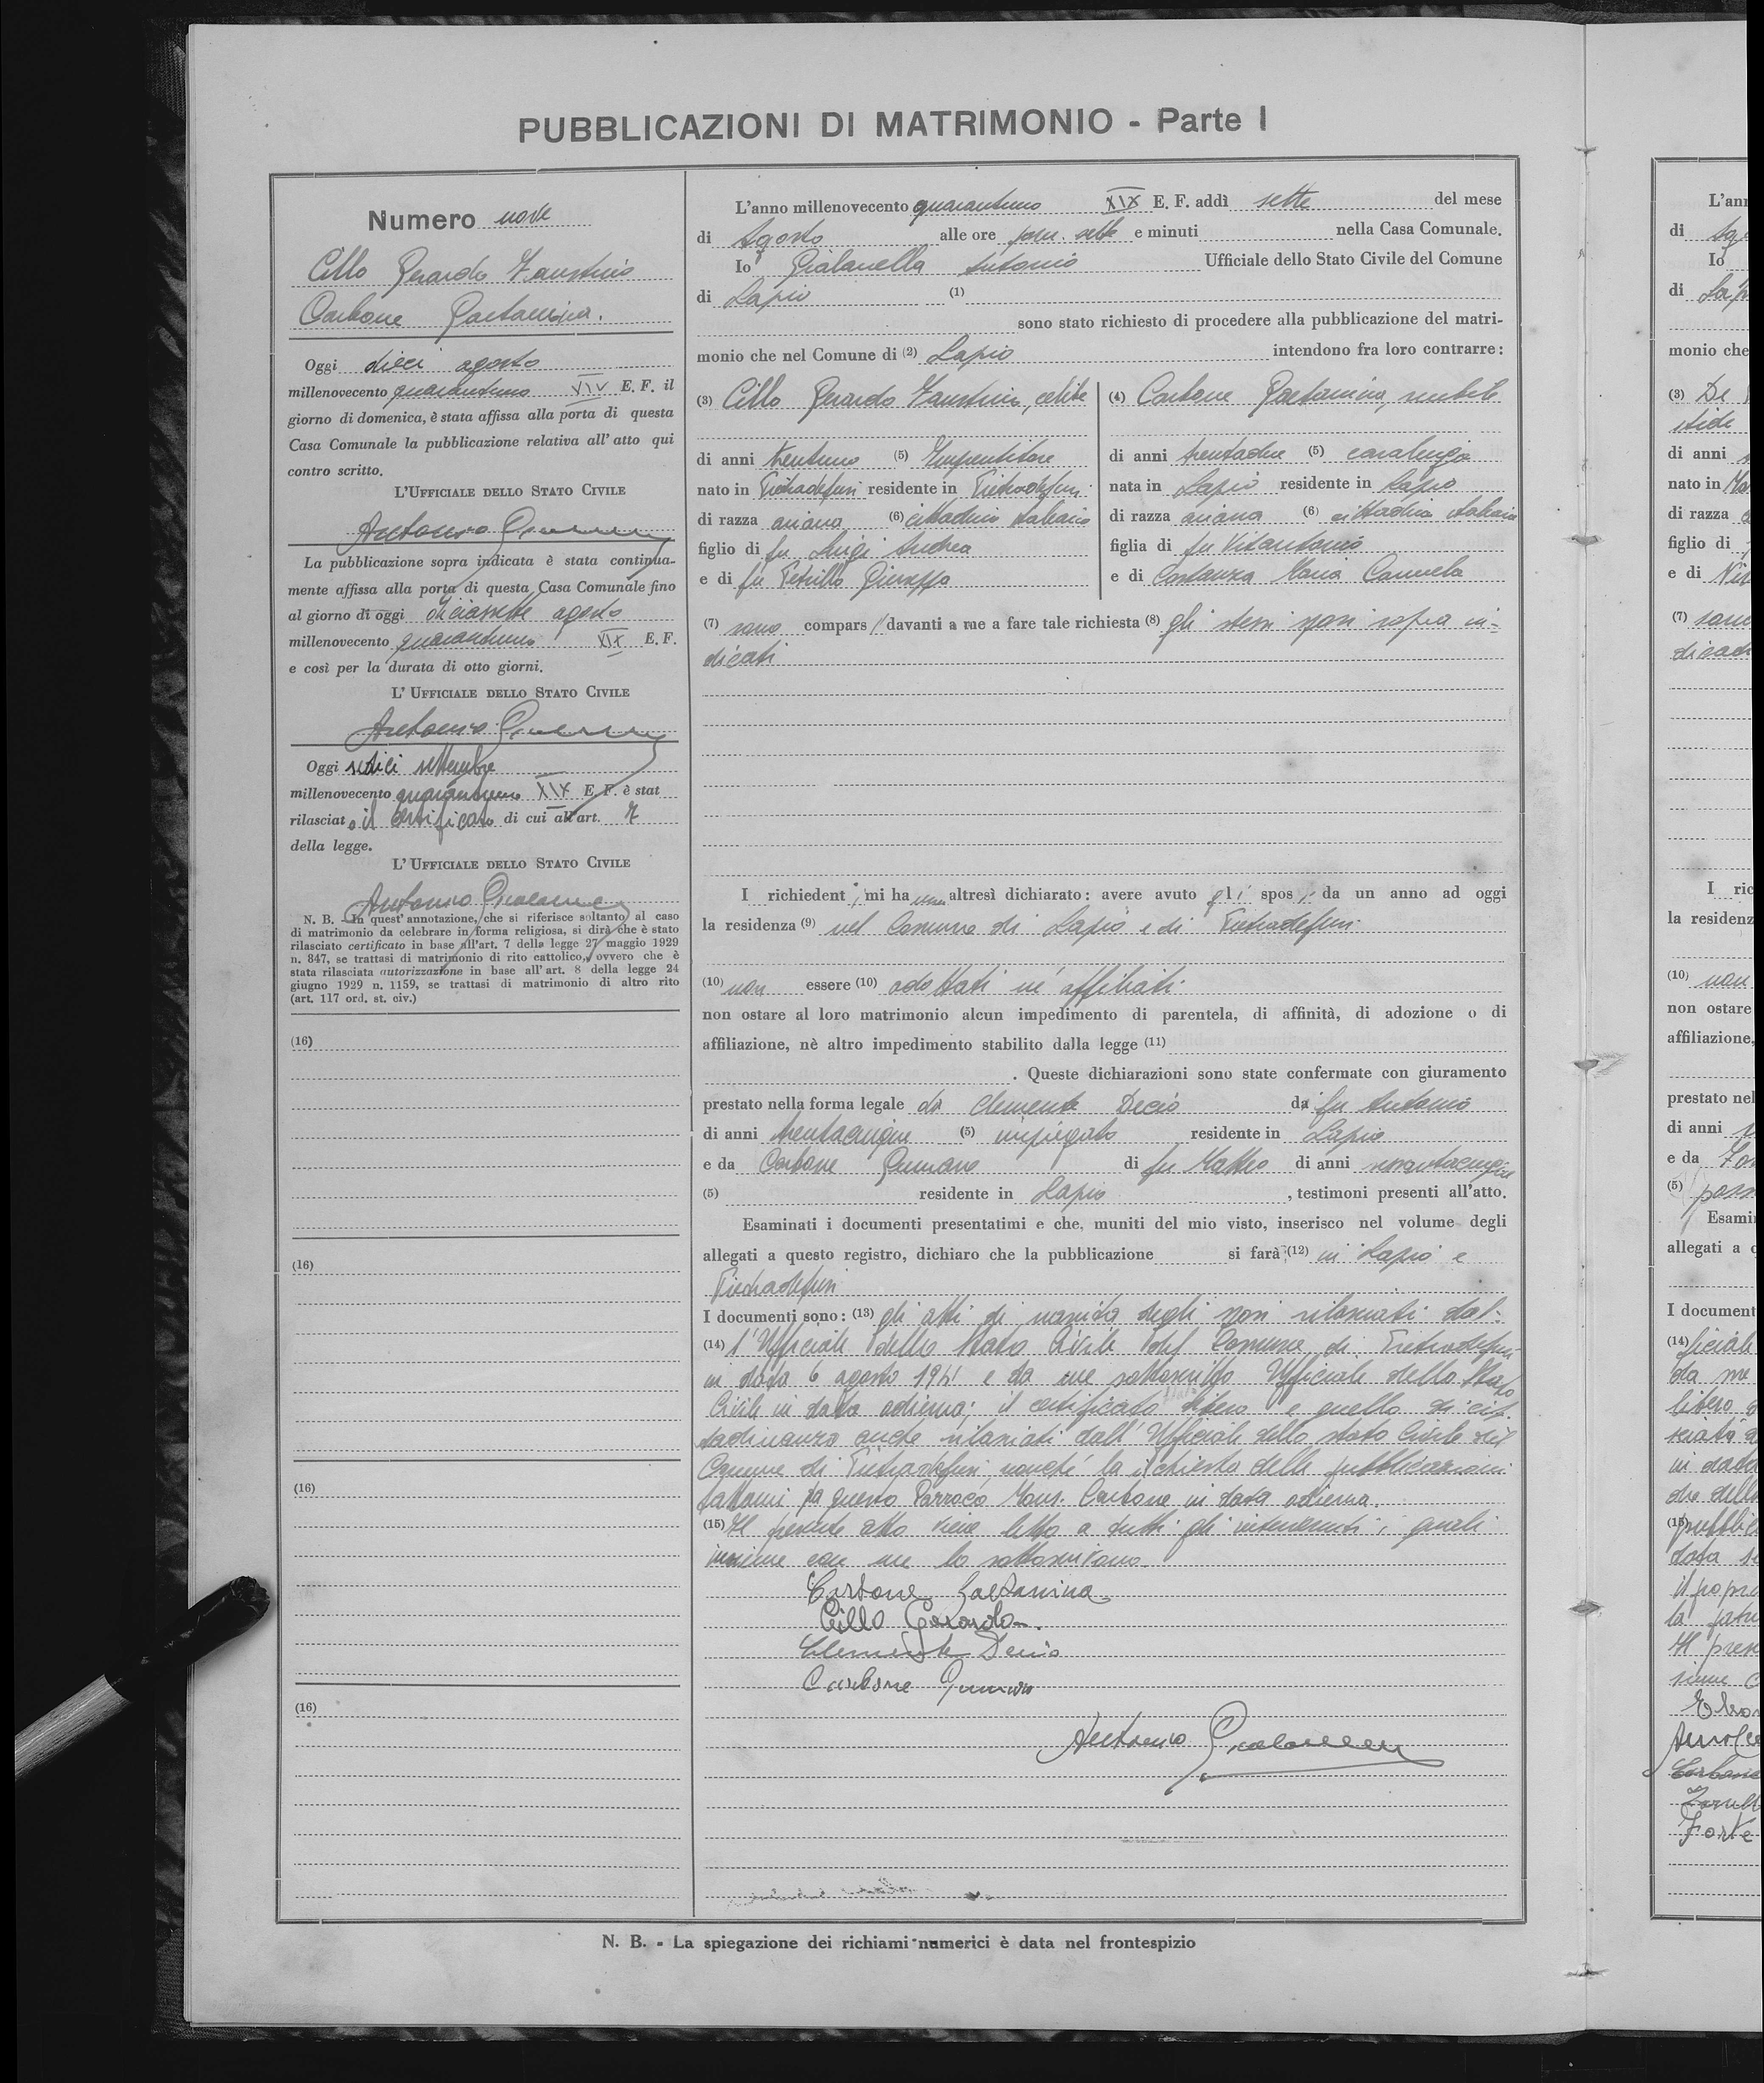 PUBBLICAZIONI DI MATRIMONIO - Parte I
Numero nove
Cillo Gerardo Faustino
Carbone Gaetanina.
Oggi dieci agosto
millenovecento quarantuno XIX E. F. il
giorno di domenica, è stata affissa alla porta di questa
Casa Comunale la pubblicazione relativa all' atto qui
contro scritto.
L'UFFICIALE DELLO STATO CIVILE
Antonio
La pubblicazione sopra indicata è stata continua-
mente affissa alla porta di questa Casa Comunale fino
al giorno di oggi diciassette agosto
millenovecento quarantuno XIX E. F.
e così per la durata di otto giorni.
L' UFFICIALE DELLO STATO CIVILE
Antonio
Oggi sedici settembre
millenovecento quarantuno XIX E. F. è stat
rilasciat o il certificato di cui all'art. 7
della legge.
L' UFFICIALE DELLO STATO CIVILE
Antonio Gialanella
N. B. - In quest' annotazione, che si riferisce soltanto al caso
di matrimonio da celebrare in forma religiosa, si dirà che è stato
rilasciato certificato in base all'art. 7 della legge 27 maggio 1929
n. 847, se trattasi di matrimonio di rito cattolico, ovvero che è
stata rilasciata autorizzazione in base all' art. 8 della legge 24
giugno 1929 n. 1159, se trattasi di matrimonio di altro rito
(art. 117 ord. st. civ.)
(16)
(16)
(16)
(16)
L'anno millenovecento quarantuno XIX E. F. addì sette del mese
di Agosto alle ore pom. sette e minuti nella Casa Comunale.
Io Gialanella Antonio Ufficiale dello Stato Civile del Comune
di Lapio (1)
sono stato richiesto di procedere alla pubblicazione del matri-
monio che nel Comune di (2) Lapio intendono fra loro contrarre:
(3) Cillo Gerardo Faustino, celibe
di anni trentuno (5)
nato in Pietradefusi residente in Pietradefusi
di razza ariana (6) cittadino italiano
figlio di fu Luigi Andrea
e di fu Petrillo Giuseppa
(4) Carbone Gaetanina, nubile
di anni trentadue (5) casalinga
nata in Lapio residente in Lapio
di razza ariana (6) cittadina italiana
figlia di fu Vitantonio
e di Costanza Maria Carmela
(7) sono compars i davanti a me a fare tale richiesta (8) gli stessi sposi sopra in-
dicati
I richiedent i mi ha nno altresì dichiarato: avere avuto gli spos i da un anno ad oggi
la residenza (9) nel Comune di Lapio e di Pietradefusi
(10) non essere (10) adottati nè affiliati
non ostare al loro matrimonio alcun impedimento di parentela, di affinità, di adozione o di
affiliazione, nè altro impedimento stabilito dalla legge (11)
. Queste dichiarazioni sono state confermate con giuramento
prestato nella forma legale da Clemente Decio di fu Antonio
di anni trentacinque (5) impiegato residente in Lapio
e da Carbone Gennaro di fu Matteo di anni sessantacinque
(5) residente in Lapio , testimoni presenti all'atto.
Esaminati i documenti presentatimi e che, muniti del mio visto, inserisco nel volume degli
allegati a questo registro, dichiaro che la pubblicazione si farà (12) in Lapio e
Pietradefusi
I documenti sono: (13) gli atti di nascita degli sposi rilasciati dal-
(14) l'Ufficiale dello Stato Civile del Comune di Pietradefusi
in data 6 agosto 1941 e da me sottoscritto Ufficiale dello Stato
Civile in data odierna; il certificato libero e quello di cit-
tadinanza anche rilasciati dall'Ufficiale dello stato Civile del
Comune di Pietradefusi nonchè la richiesta delle pubblicazioni
fattami da questo Parroco Mons. Carbone in data odierna.
(15) Il presente atto viene letto a tutti gli intervenuti i quali
insieme con me lo sottoscrivono
Carbone Gaetanina
Cillo Gerardo.
Clemente Decio
Carbone Gennaro
Antonio Gialanella
N. B. - La spiegazione dei richiami numerici è data nel frontespizio